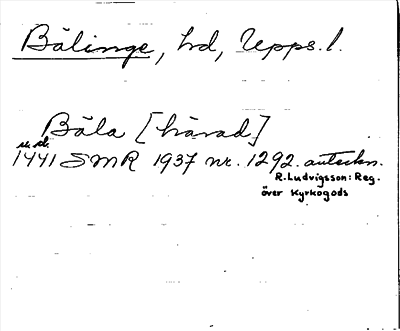 Bälinge, hd, Upps. l.
Bäla [härad]
u. d.
1441 SMR 1937 nr. 1292. anteckn.
R. Ludvigsson: Reg.
över Kyrkogods